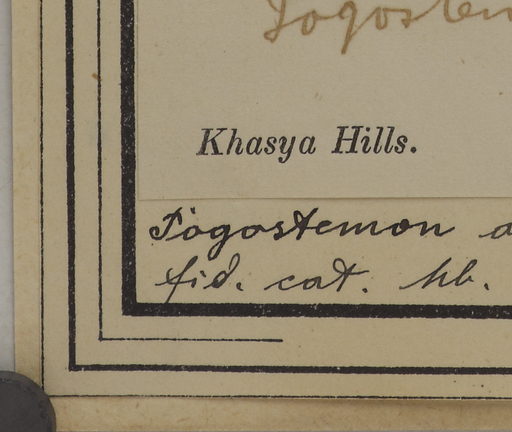 Pogostem
Khasya Hills.
Pogostemon a
fid. cat. hb.